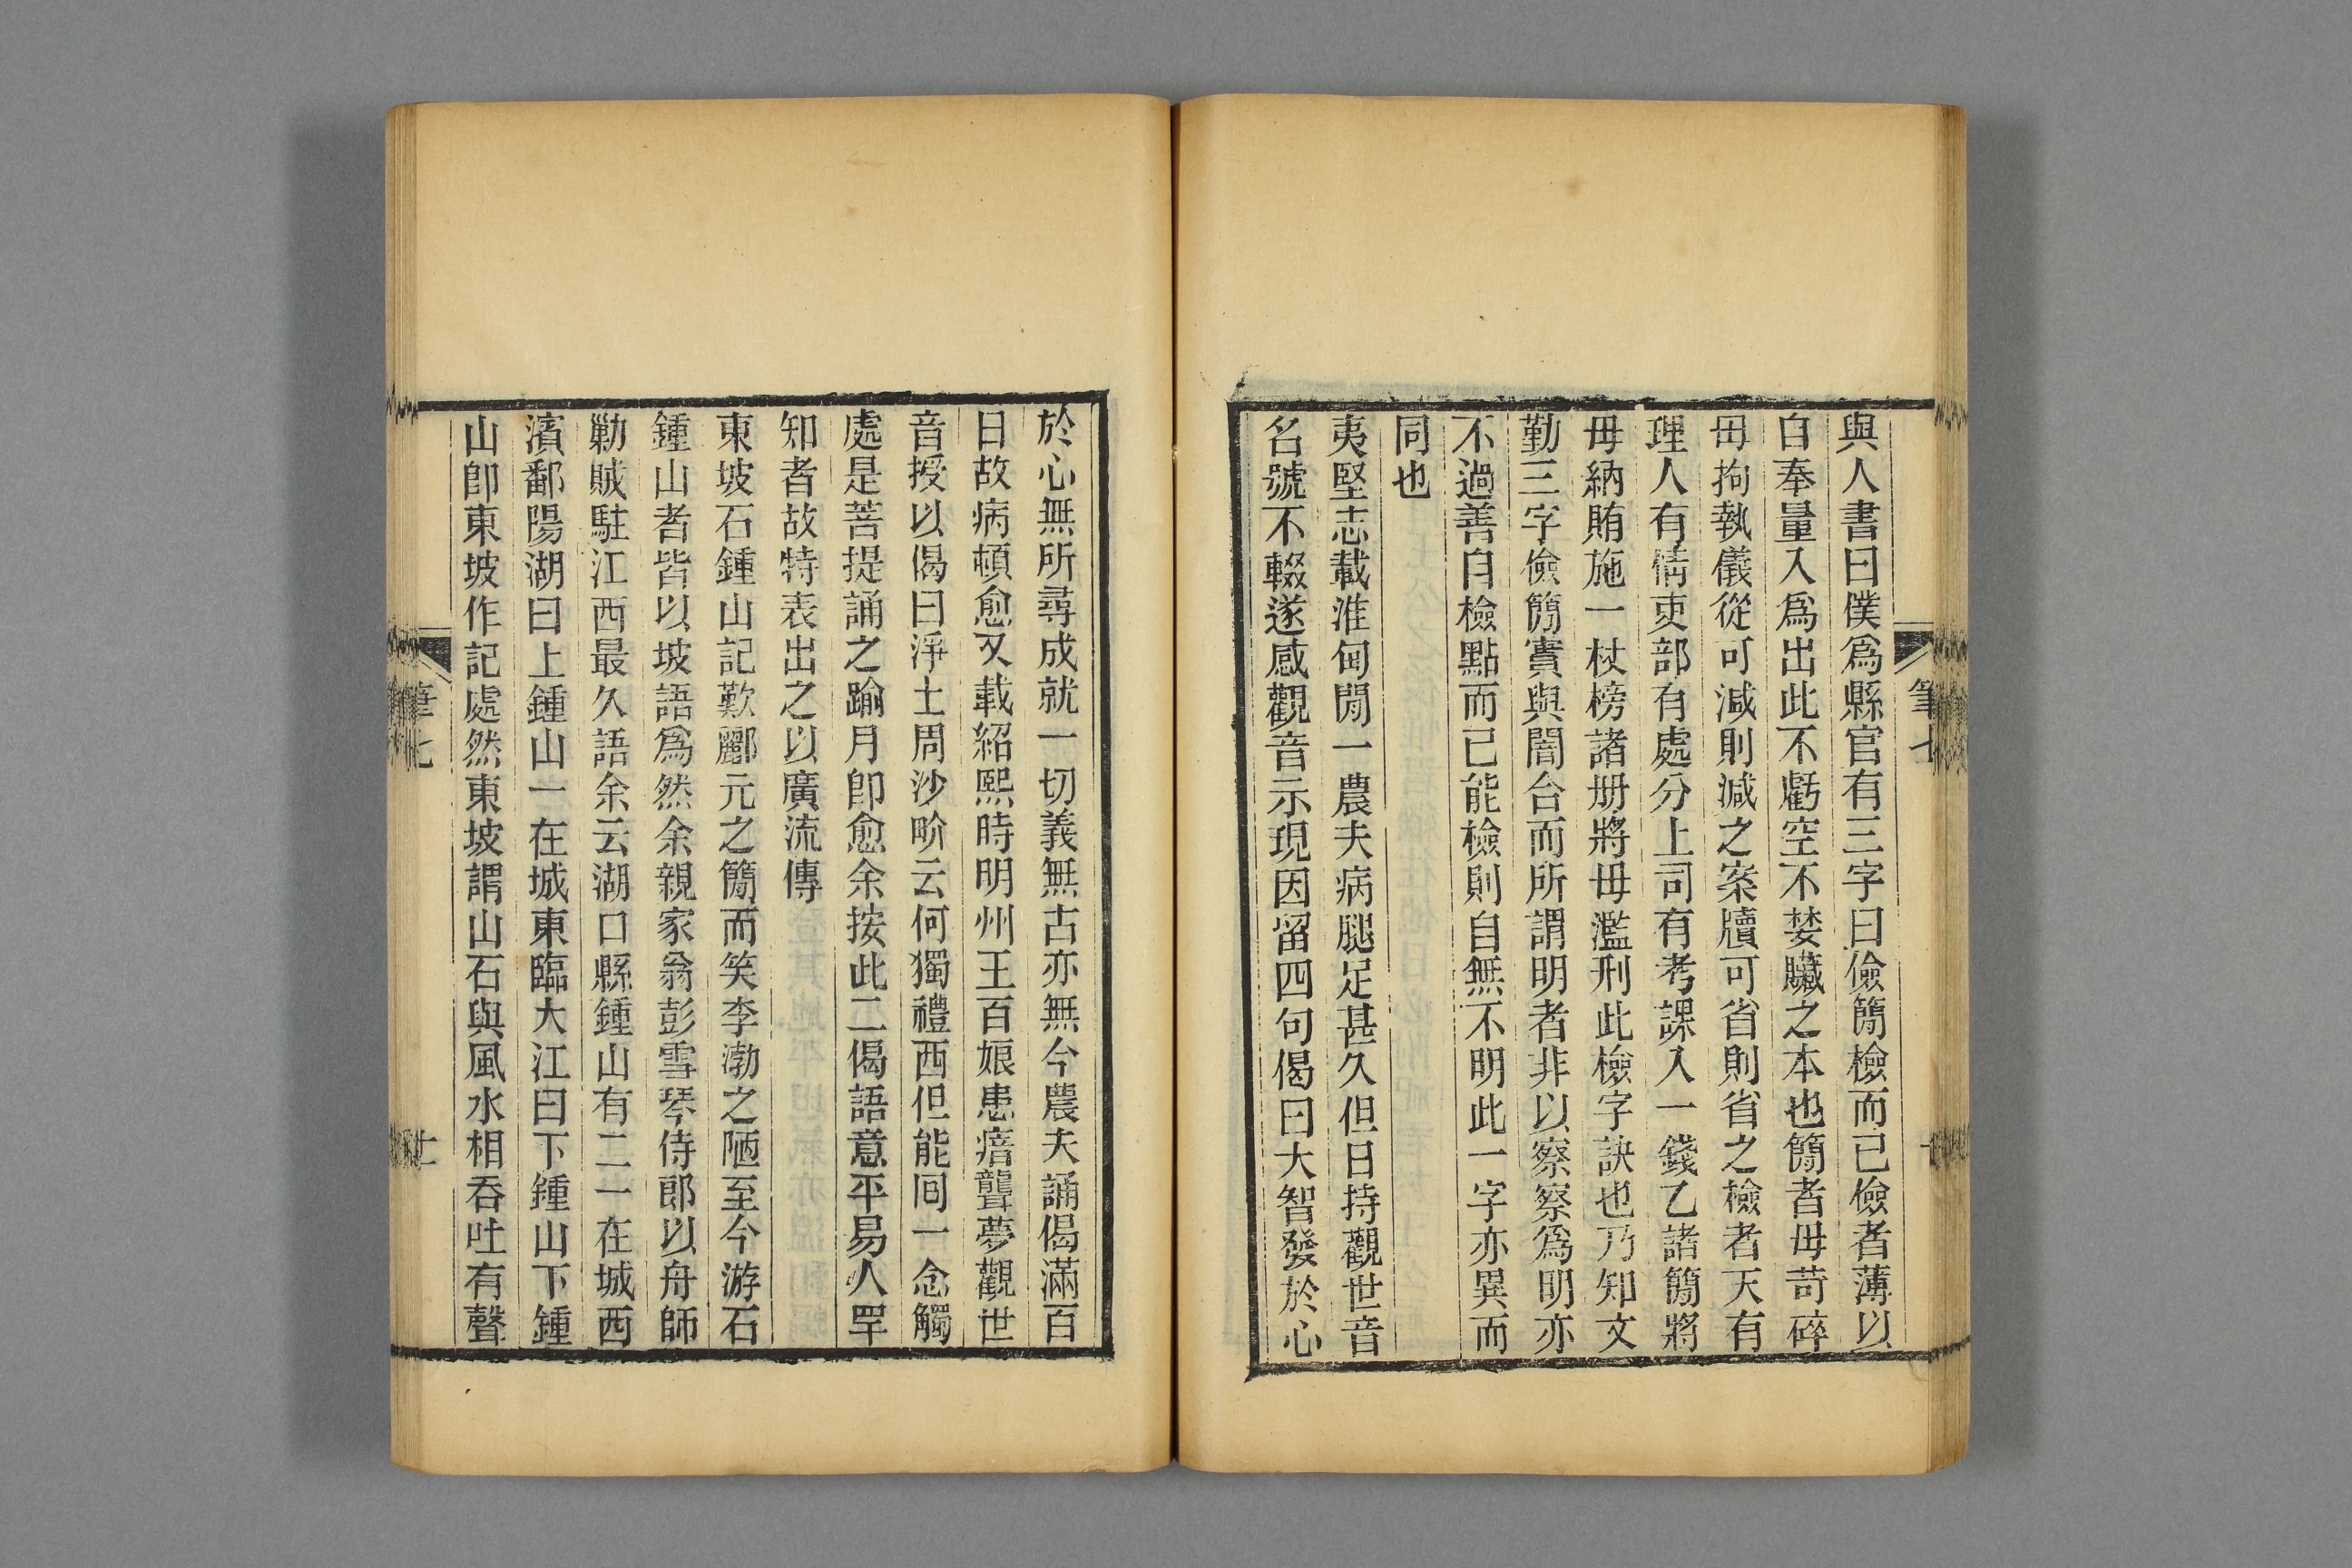 與人書曰僕爲縣官有三字曰儉簡檢而已儉者薄以
自奉量入爲出此不虧空不婪贓之本也簡者毋苛碎
毋拘執儀從可減則減之案牘可省則省之檢者天有
理人有情吏部有處分上司有考課入一錢乙諸簡將
毋納賄施一杖榜諸册將毋濫刑此檢字訣也乃知文
勤三字儉簡實與闇合而所謂明者非以察察爲明亦
不過善自檢點而已能檢則自無不明此一字亦異而
同也
夷堅志載淮甸閒一農夫病腿足甚久但日持觀世音
名號不輟遂感觀音示現因留四句偈曰大智發於心
於心無所尋成就一切義無古亦無今農夫誦偈滿百
日故病頓愈又載紹熙時明州王百娘患瘖聾夢觀世
音授以偈曰淨土周沙畍云何獨禮西但能回一念觸
處是菩提誦之踰月卽愈余按此二偈語意平易人罕
知者故特表出之以廣流傳
東坡石鍾山記歎酈元之簡而笑李渤之陋至今游石
鍾山者皆以坡語爲然余親家翁彭雪琴侍郎以舟師
勦賊駐江西最久語余云湖口縣鍾山有二一在城西
濱鄱陽湖曰上鍾山一在城東臨大江曰下鍾山下鍾
山卽東坡作記處然東坡謂山石與風水相吞吐有聲
筆七
筆七
十